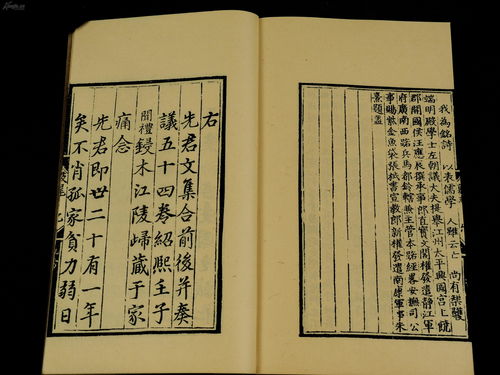 我為銘詩 以表儒學 人雖云亡 尚有
端明殿學士左朝議大夫提舉江州太平興國宮上饒
郡開國侯汪應辰撰承事郎直寶文閣權發遣靜江軍
府廣南西路兵馬都鈐轄兼主管本路經畧安撫司公
事賜紫金魚袋張栻書宣教郎新權發遣南康軍事朱
熹題蓋
右
先君文集合前後并奏
議五十四卷紹熙壬子
開禮鋟木江陵歸藏于家
痛念
先君即世二十有一年
矣不肖孤家貧力弱日